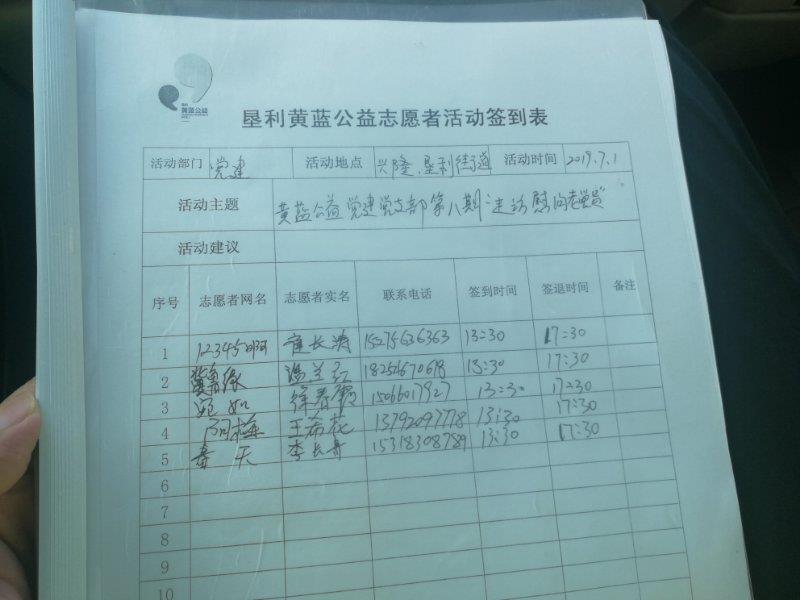 黄蓝公益
垦利黄蓝公益志愿者活动签到表
活动部门 党建 活动地点 兴隆、垦利街道 活动时间 2019.7.1
活动主题 黄蓝公益党建党支部第八期“走访慰问老党员”
活动建议
序号 志愿者网名 志愿者实名 联系电话 签到时间 签退时间 备注
1 12345啊 崔长涛 15275636363 13:30 17:30
2 缘 18256670618 13:30 17:30
3 宛如 徐春霞 15066017927 13:30 17:30
4 阿梅 王希花 13792097778 13:30 17:30
5 春天 李长青 15318308789 13:30 17:30
6
7
8
9
10